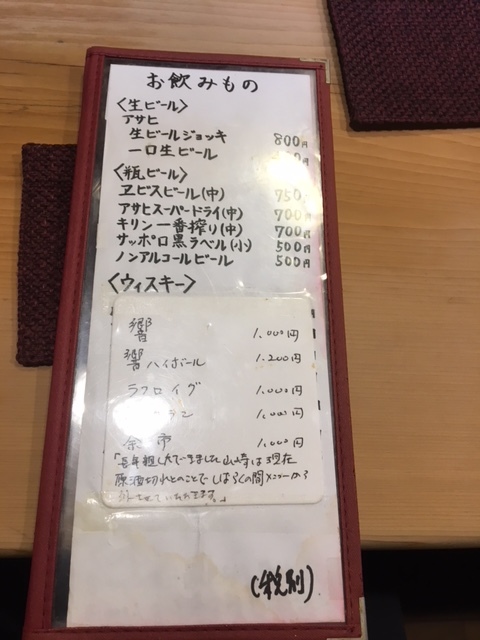 お飲みもの
〈生ビール〉
アサヒ
生ビールジョッキ 800円
一口生ビール 円
〈瓶ビール〉
ヱビスビール(中) 750
アサヒスーパードライ(中) 700円
キリン一番搾り(中) 700円
サッポロ黒ラベル(小) 500円
ノンアルコールビール 500円
〈ウィスキー〉
響 1,000円
響ハイボール 1,200円
ラフロイグ 1,000円
1,000円
余市 1,000円
「長年親しんでいました山崎は現在
原酒切れとのことでしばらくの間メニューから
(税別)